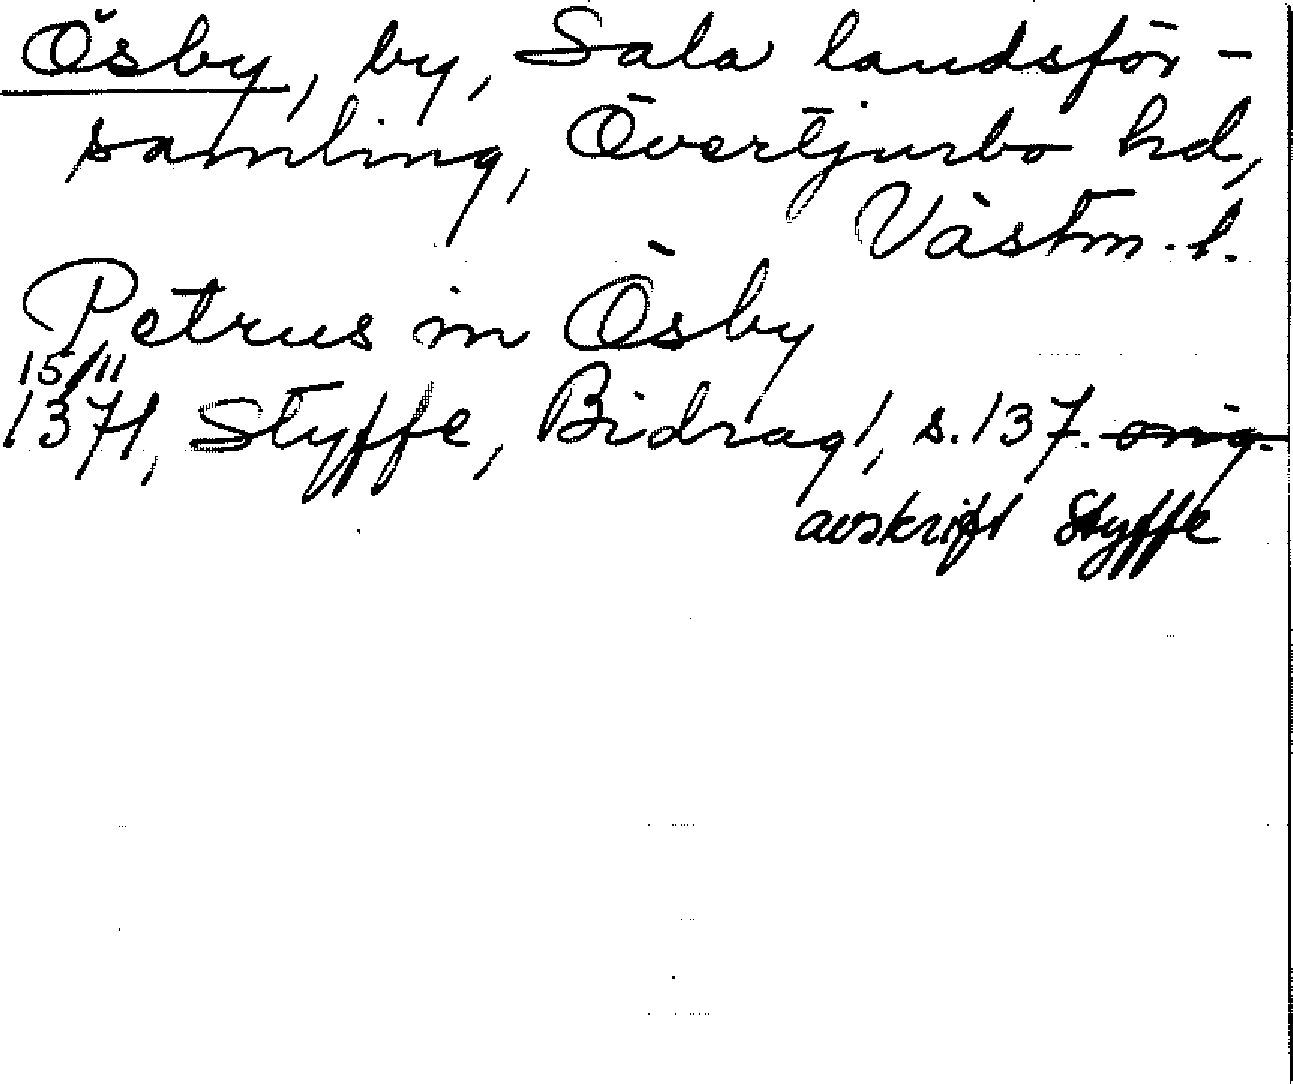 Ösby, by, Sala landsför-
samling, Övertjurbo hd,
Västm. l.
Petrus in Ösby
15/11
1371, Styffe, Bidrag 1, s. 137. orig.
avskrift Styffe